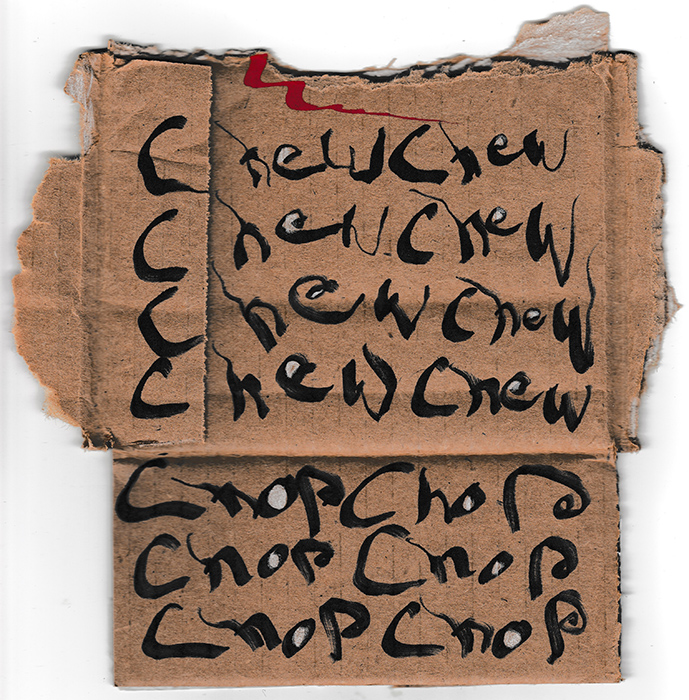 Chew Chew
Chew Chew
Chew Chew
Chew Chew
Chop Chop
Chop Chop
Chop Chop